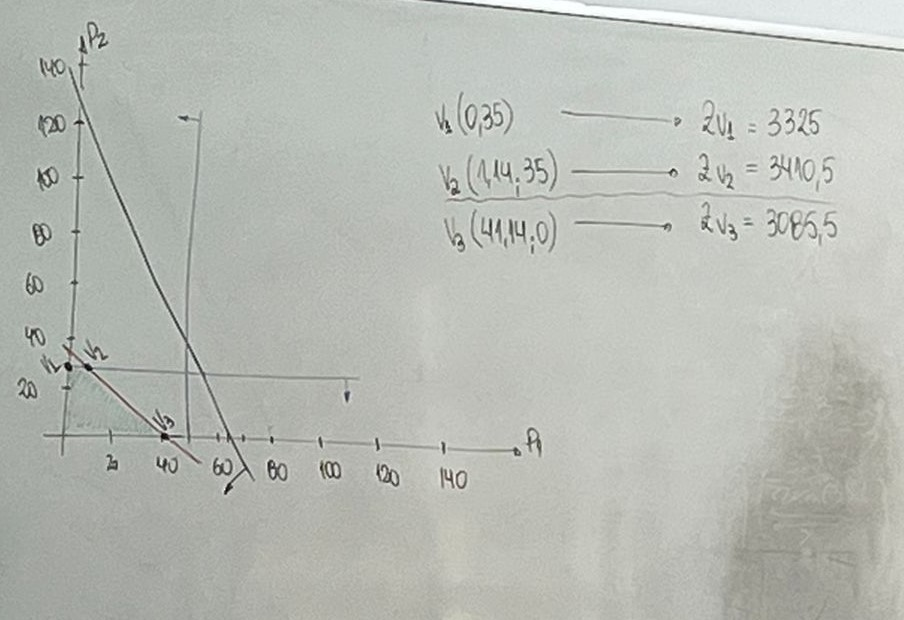 P2
140
120
100
80
60
40
20
V1 V2
V3
20 40 60 80 100 120 140
P1
V1 (0,35) → Zv1 = 3325
V2 (1,14;35) → Zv2 = 3410,5
V3 (41,14;0) → Zv3 = 3085,5